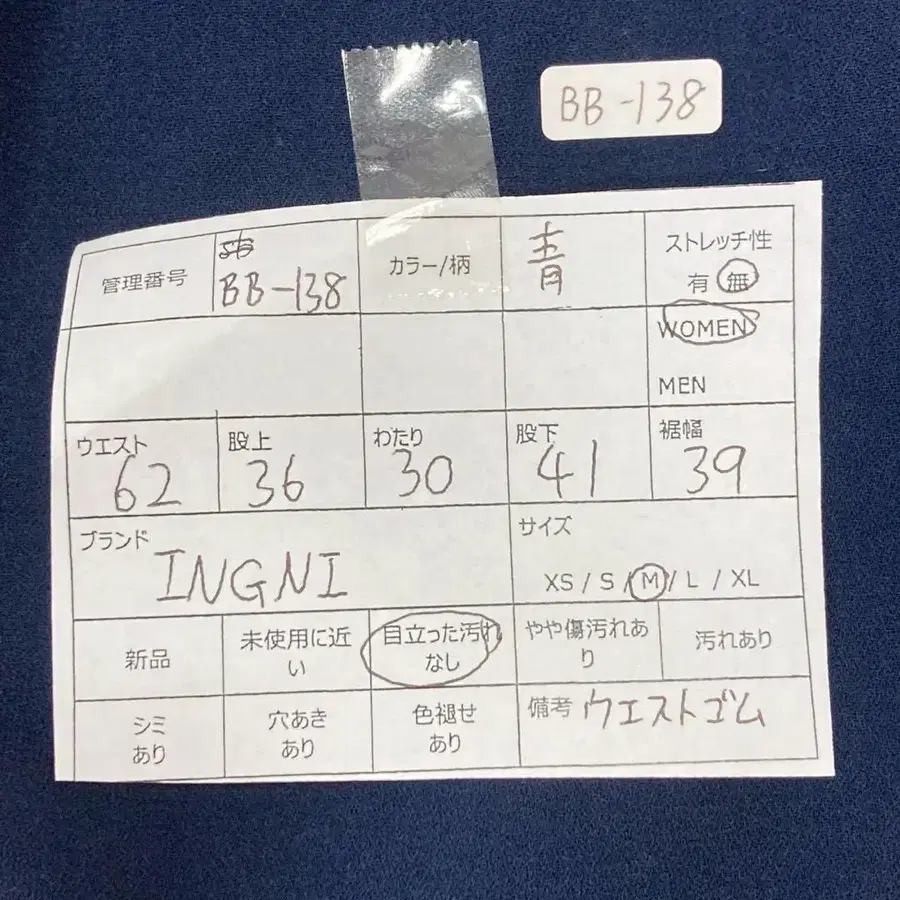 BB-138
管理番号
BB-138
カラー/柄
青
ストレッチ性
有 無
WOMEN
MEN
ウエスト
62
股上
36
わたり
30
股下
41
裾幅
39
ブランド
INGNI
サイズ
XS / S / M / L / XL
新品
未使用に近
い
目立った汚れ
なし
やや傷汚れあ
り
汚れあり
シミ
あり
穴あき
あり
色褪せ
あり
備考 ウエストゴム